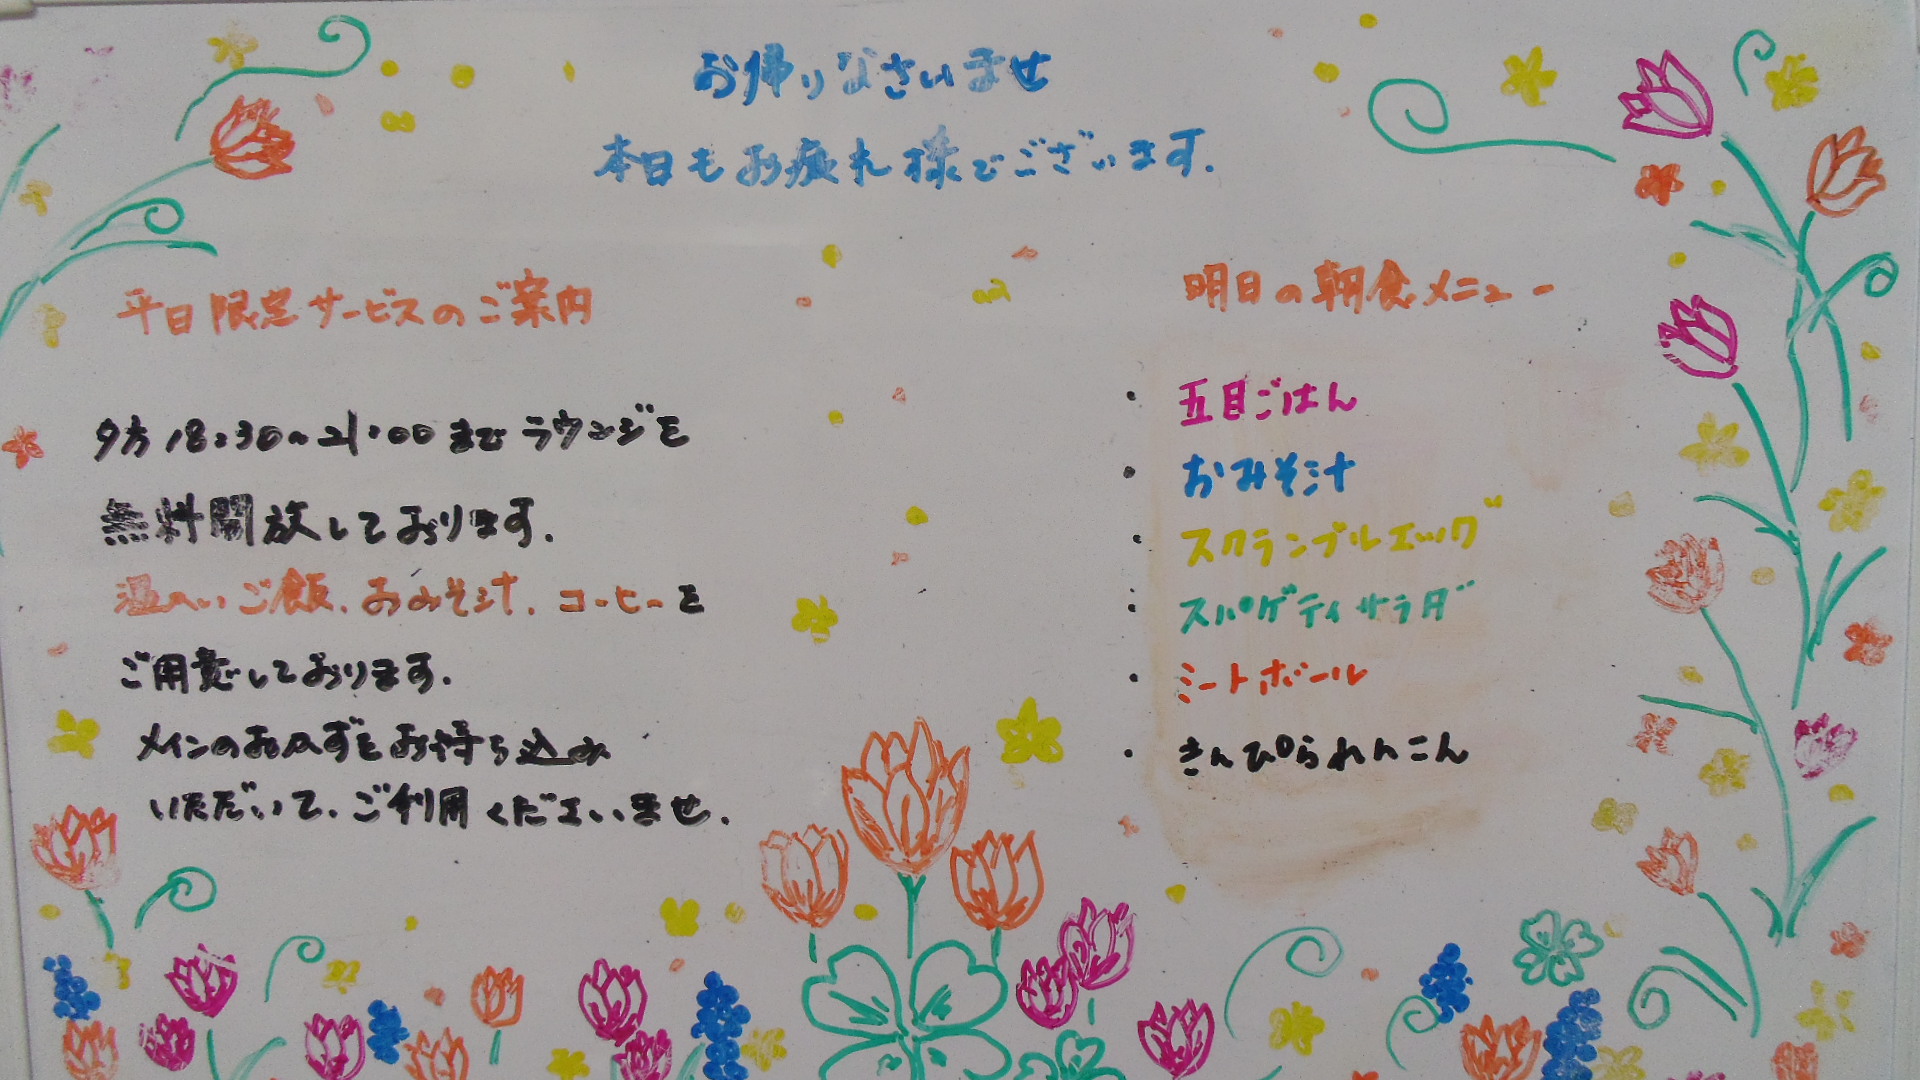 お帰りなさいませ
本日もお疲れ様でございます.
平日限定サービスのご案内
夕方18:30〜21:00までラウンジを
無料開放しております.
温かいご飯、おみそ汁、コーヒーを
ご用意しております.
メインのおかずをお持ち込み
いただいて、ご利用くださいませ.
明日の朝食メニュー
・五目ごはん
・おみそ汁
・スクランブルエッグ
・スパゲティサラダ
・ミートボール
・きんぴられんこん